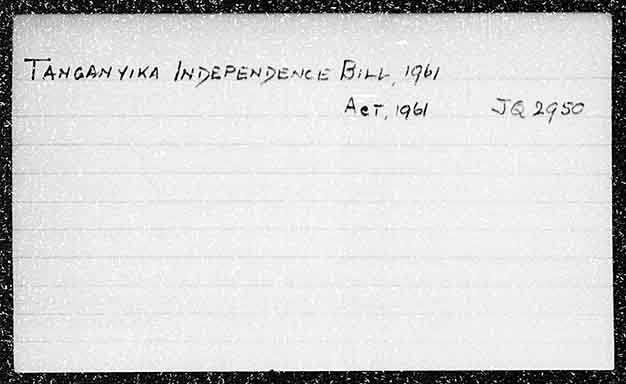 TANGANYIKA INDEPENDENCE BILL, 1961
ACT, 1961 JQ 2950